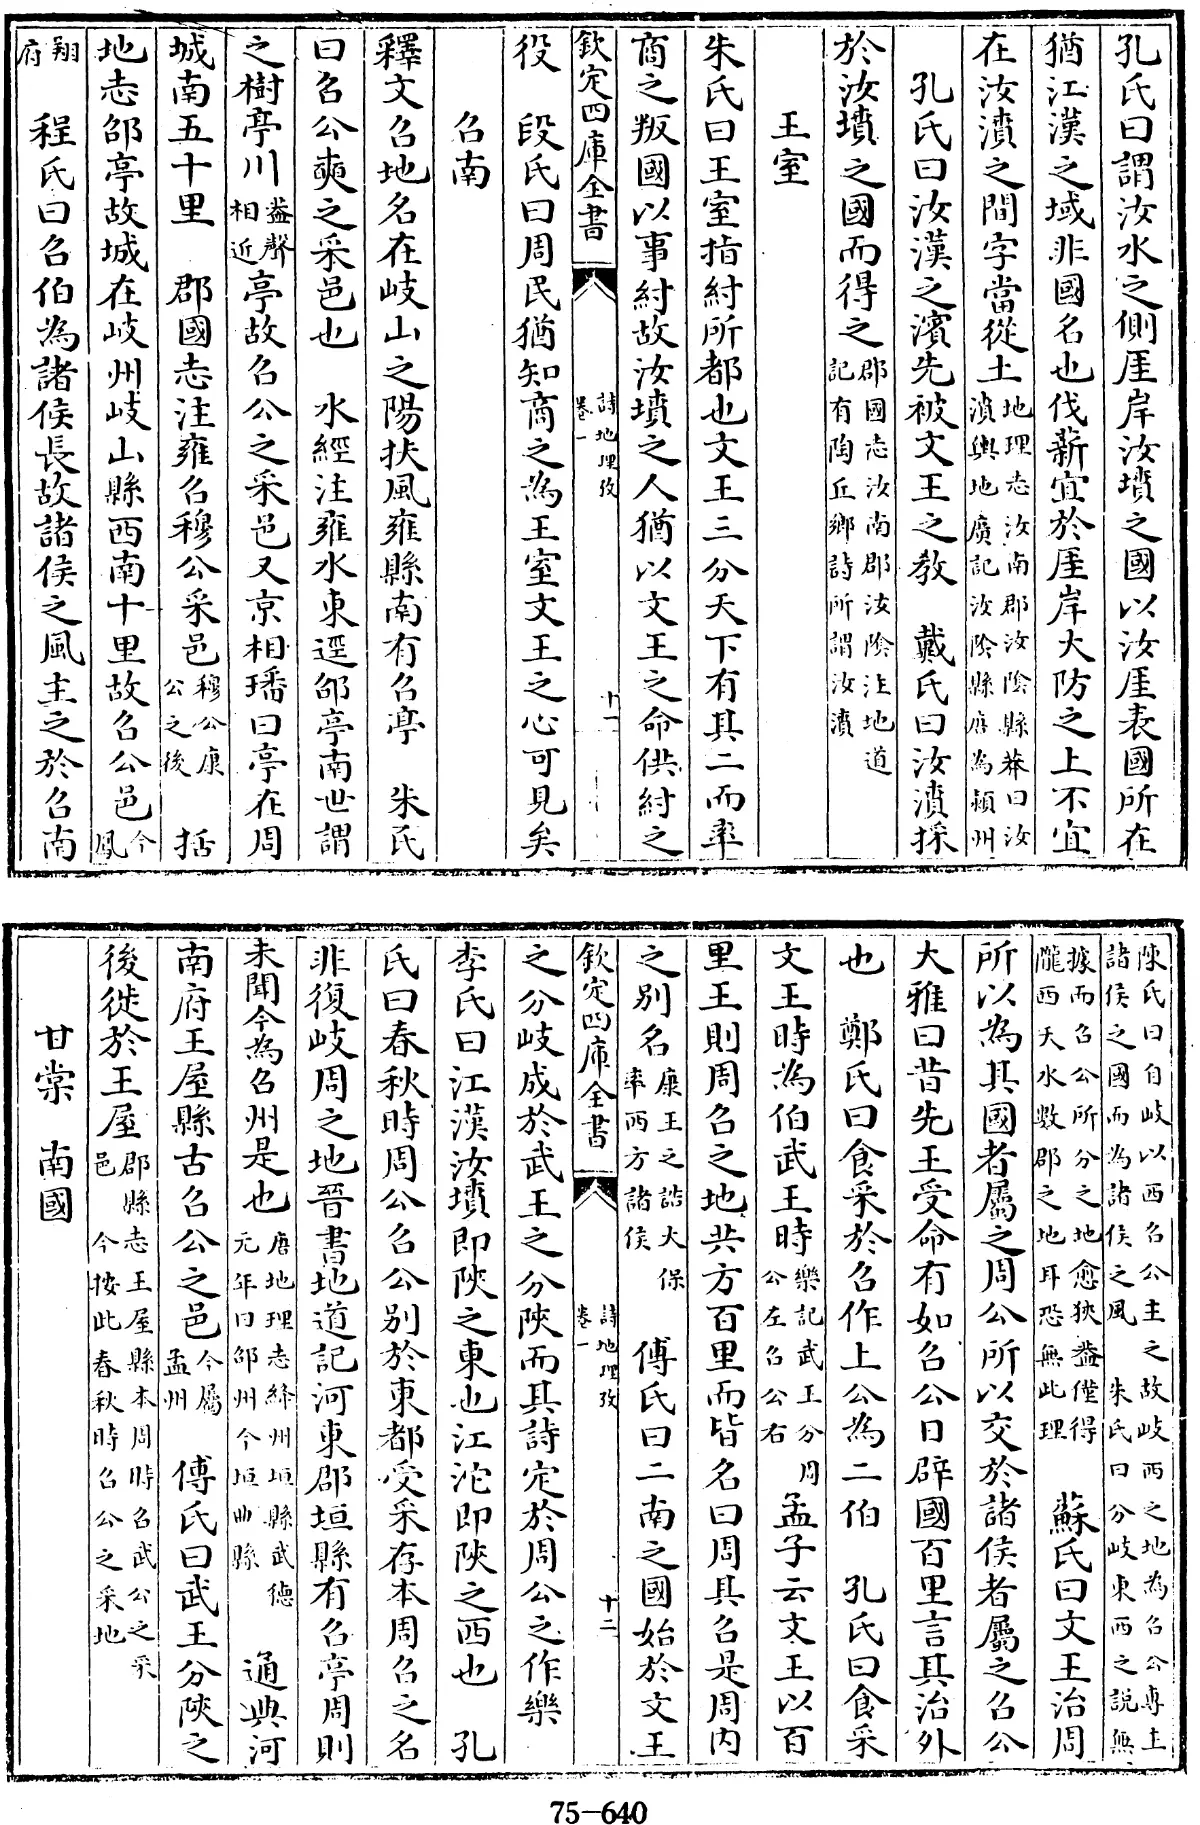 孔氏曰謂汝水之側厓岸汝墳之國以汝厓表國所在
猶江漢之域非國名也伐薪宜於厓岸大防之上不宜
在汝濆之間字當從土地理志汝南郡汝隂縣莽曰汝濆輿地廣記汝隂縣唐為頴州
孔氏曰汝漢之濱先被文王之教　戴氏曰汝濆採
於汝墳之國而得之郡國志汝南郡汝隂注地道記有陶丘鄉詩所謂汝濆
王室
朱氏曰王室指紂所都也文王三分天下有其二而率
商之叛國以事紂故汝墳之人猶以文王之命供紂之
欽定四庫全書　詩地理攷卷一　十一
役　段氏曰周民猶知商之為王室文王之心可見矣
召南
釋文召地名在岐山之陽扶風雍縣南有召亭　朱氏
曰召公奭之采邑也　水經注雍水東逕邵亭南世謂
之樹亭川蓋聲相近亭故召公之采邑又京相璠曰亭在周
城南五十里　郡國志注雍召穆公采邑穆公康公之後　括
地志邵亭故城在岐州岐山縣西南十里故召公邑今鳳
翔府　程氏曰召伯為諸侯長故諸侯之風主之於召南
陳氏曰自岐以西召公主之故岐西之地為召公専主諸侯之國而為諸侯之風　朱氏曰分岐東西之説無
據而召公所分之地愈狹蓋僅得隴西天水數郡之地耳恐無此理　蘇氏曰文王治周
所以為其國者屬之周公所以交於諸侯者屬之召公
大雅曰昔先王受命有如召公日辟國百里言其治外
也　鄭氏曰食采於召作上公為二伯　孔氏曰食采
文王時為伯武王時樂記武王分周公左召公右　孟子云文王以百
里王則周召之地共方百里而皆名曰周其召是周内
之别名康王之誥大保率西方諸侯　傅氏曰二南之國始於文王
欽定四庫全書　詩地理攷卷一　十二
之分岐成於武王之分陝而其詩定於周公之作樂
李氏曰江漢汝墳即陝之東也江沱即陝之西也　孔
氏曰春秋時周公召公别於東都受采存本周召之名
非復岐周之地晉書地道記河東郡垣縣有召亭周則
未聞今為召州是也唐地理志絳州垣縣武德元年曰邵州今垣曲縣　通典河
南府王屋縣古召公之邑今屬孟州　傅氏曰武王分陝之
後徙於王屋郡縣志王屋縣本周時召武公之采邑　今按此春秋時召公之采地
甘棠　南國
75-640